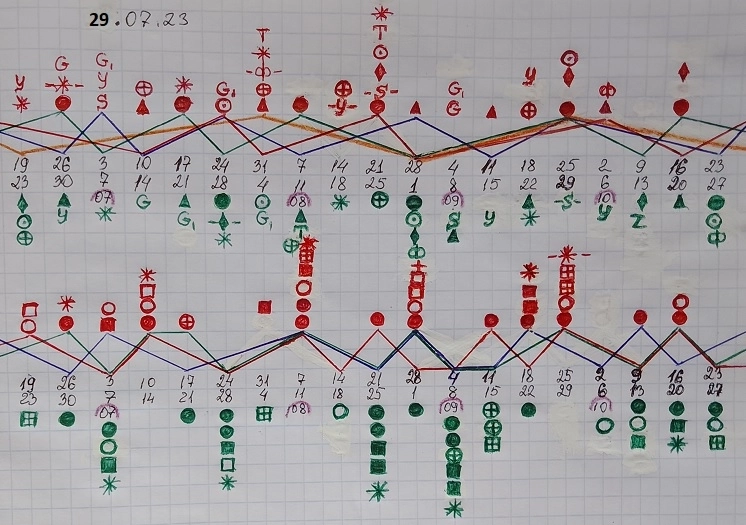 29.07.23
T
T
G G₁ y
y y G₁ -y- -S- G₁
S G
19 26 3 10 17 24 31 7 14 21 28 4 11 18 25 2 9 16 23
23 30 7 14 21 28 4 11 18 25 1 8 15 22 29 6 13 20 27
07 08 09 10
y G G₁ G₁ T S y -S- y Z
19 26 3 10 17 24 31 7 14 21 28 4 11 18 25 2 9 16 23
23 30 7 14 21 28 4 11 18 25 1 8 11 22 29 6 13 20 27
07 08 09 10